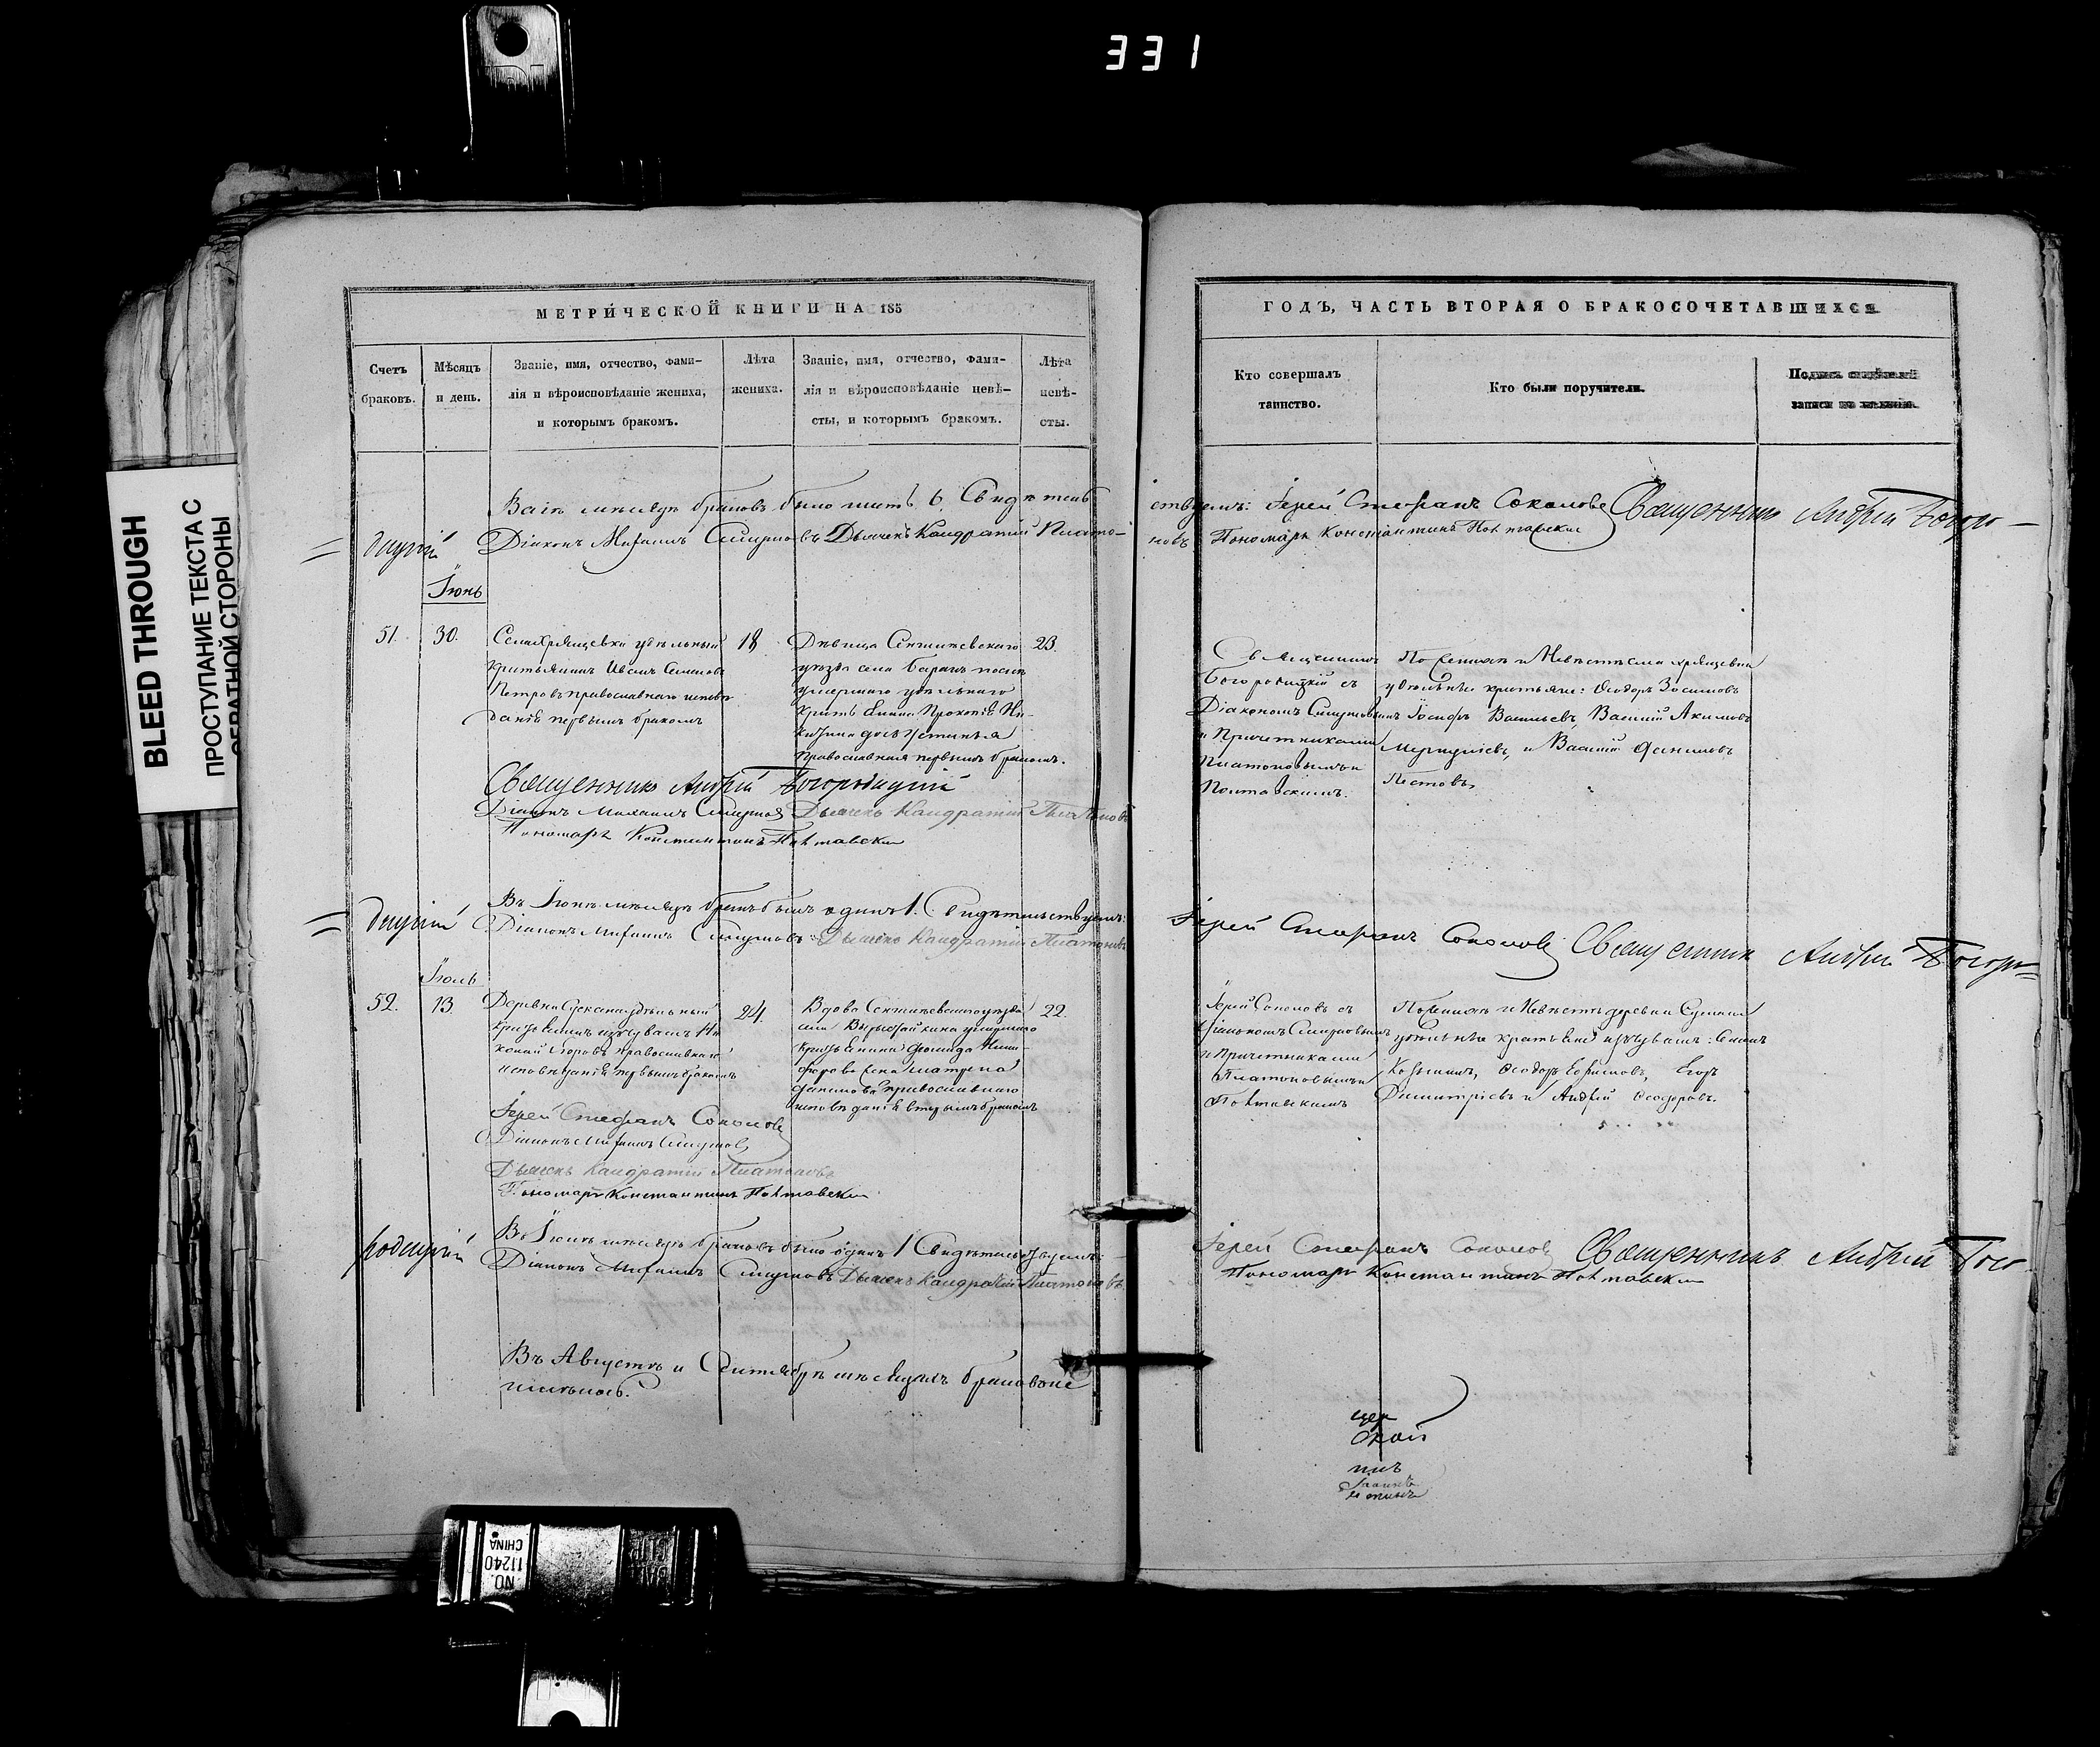 331
BLEED THROUGH
ПРОСТУПАНИЕ ТЕКСТА С
ОБРАТНОЙ СТОРОНЫ
МЕТРИ́ЧЕСКОЙ КНИГИ НА 185
Счетъ браковъ.
Мѣсяцъ и день.
Званіе, имя, отчество, фами-
лія и вѣроисповѣданіе жениха,
и которымъ бракомъ.
Лѣта жениха.
Званіе, имя, отчество, фами-
лія и вѣроисповѣданіе невѣ-
сты, и которымъ бракомъ.
Лѣта невѣ-
сты.
браковъ было шесть 6. Свидѣтель
=
Діаконъ Михаилъ Смирновъ Дьячекъ Кандратій Плато-
Іюнь
51. 30.
Села Хрящевки удѣльный
крестьянинъ Иванъ Семеновъ
Петровъ православнаго исповѣ
данія первымъ бракомъ
18
Дѣвица Сенгилѣевскаго
уѣзда села
умершаго удѣльнаго
крестьянина Прокопія Ни-
дочь Устинья
православная первымъ бракомъ.
23.
Священникъ Андрей Богородицкій
Діаконъ Михаилъ Смирновъ Дьячекъ Кандратій Платоновъ
Пономарь Константинъ Полтавскій
Въ Іюнѣ мѣсяцѣ бракъ былъ одинъ 1. Свидѣтельствуемъ:
= дицкій Діаконъ Михаилъ Смирновъ Дьячекъ Кандратій Платоновъ
Іюль
52. 13.
Деревни Сускана удѣльный
крестьянинъ изъ чувашъ Ни
колай Егоровъ православнаго
исповѣданія первымъ бракомъ
24.
Вдова Сенгилѣевскаго уѣзда
села умершаго
крестьянина Ники-
форова жена Матрена
Данилова православнаго
исповѣданія вторымъ бракомъ
22.
Іерей Стефанъ Соколовъ
Діаконъ Михаилъ Смирновъ
Дьячекъ Кандратій Платоновъ
Пономарь Константинъ Полтавскій
родицкій
Въ Іюлѣ мѣсяцѣ браковъ было одинъ 1 Свидѣтельствуемъ:
Діаконъ Михаилъ Смирновъ Дьячекъ Кандратій Платоновъ
Въ Августѣ и Сентябрѣ мѣсяцахъ браковъ не
имѣлось.
ГОДЪ, ЧАСТЬ ВТОРАЯ О БРАКОСОЧЕТАВШИХСЯ
Кто совершалъ
таинство.
Кто были поручители.
Подпись свидѣтелей
записи по желанію.
ствуемъ: Іерей Стефанъ Соколовъ Священникъ Андрей Богоро-
новъ Пономарь Константинъ Полтавскій
Священникъ
Богородицкій съ
Діакономъ Смирновымъ
и Причетниками
Платоновымъ и
Полтавскимъ.
По женихѣ и невѣстѣ села Хрящевки
удѣльные крестьяне: Ѳеодоръ Зосимовъ
Іосифъ Васильевъ, Василій Акимовъ
и Василій
Пестовъ.
Іерей Стефанъ Соколовъ Священникъ Андрей Богоро=
Іерей Соколовъ съ
Діакономъ Смирновымъ
и Причетниками
Платоновымъ и
Полтавскимъ
По женихѣ и невѣстѣ деревни Сускана
удѣльные крестьяне изъ чувашъ:
Козьминъ, Ѳеодоръ Ефимовъ, Егоръ
Димитріевъ и Андрей Ѳеодоровъ.
Іерей Стефанъ Соколовъ Священникъ Андрей Бого
Пономарь Константинъ Полтавскій
NO.
11240
CHINA